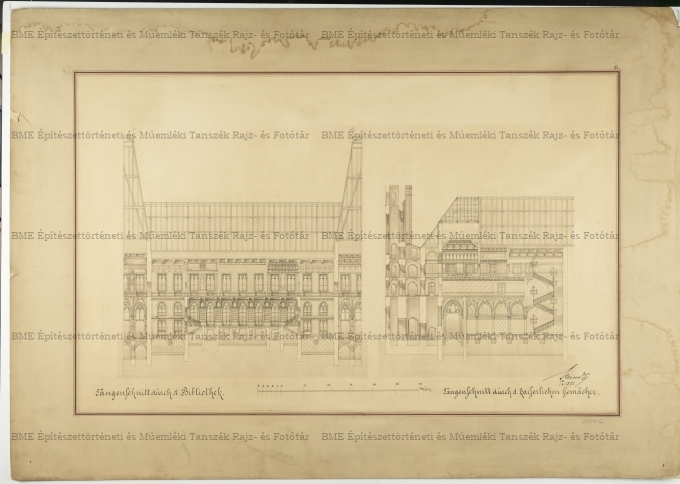 BME Építészettörténeti és Műemléki Tanszék Rajz- és Fotótár BME Építészettörténeti és Műemléki Tanszék Rajz- és Fotótár
BME Építészettörténeti és Műemléki Tanszék Rajz- és Fotótár BME Építészettörténeti és Műemléki Tanszék Rajz- és Fotótár
BME Építészettörténeti és Műemléki Tanszék Rajz- és Fotótár BME Építészettörténeti és Műemléki Tanszék Rajz- és Fotótár
BME Építészettörténeti és Műemléki Tanszék Rajz- és Fotótár BME Építészettörténeti és Műemléki Tanszék Rajz- és Fotótár
Längenschnitt durch d. Bibliothek.
Längenschnitt durch d. Kaiserlichen Gemächer.
BME Építészettörténeti és Műemléki Tanszék Rajz- és Fotótár BME Építészettörténeti és Műemléki Tanszék Rajz- és Fotótár